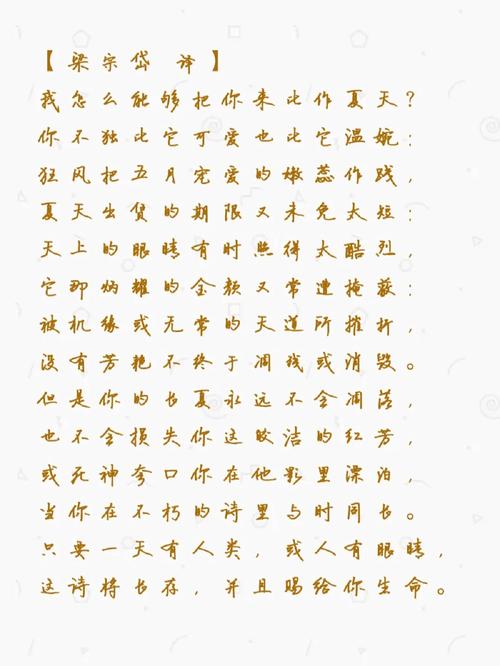 【梁宗岱 译】
我怎么能够把你来比作夏天?
你不独比它可爱也比它温婉:
狂风把五月宠爱的嫩蕊作践,
夏天出赁的期限又未免太短:
天上的眼睛有时照得太酷烈,
它那炳耀的金颜又常遭掩蔽:
被机缘或无常的天道所摧折,
没有芳艳不终于凋残或消毁。
但是你的长夏永远不会凋落,
也不会损失你这皎洁的红芳,
或死神夸口你在他影里漂泊,
当你在不朽的诗里与时同长。
只要一天有人类,或人有眼睛,
这诗将长存,并且赐给你生命。